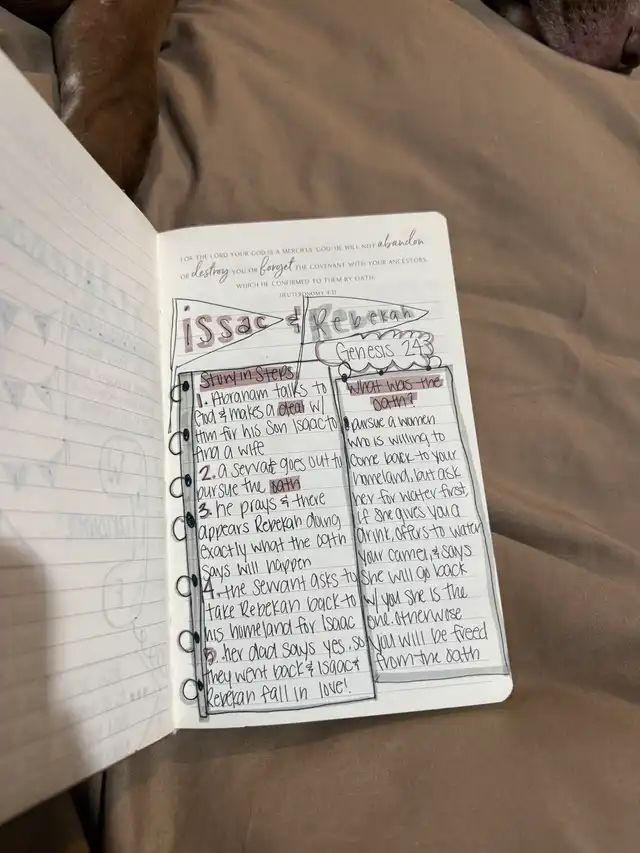 FOR THE LORD YOUR GOD IS A MERCIFUL GOD; HE WILL NOT abandon
OR destroy YOU OR forget THE COVENANT WITH YOUR ANCESTORS,
WHICH HE CONFIRMED TO THEM BY OATH.
DEUTERONOMY 4:31
issac & Rebekah
Genesis 24
Story in Steps
1. Abraham talks to
God & makes a deal w/
Him for his son Isaac to
find a wife
2. a servant goes out to
pursue the oath
3. he prays & there
appears Rebekah doing
exactly what the oath
says will happen
4. the servant asks to
take Rebekah back to
his homeland for Isaac
5. her dad says yes. so
they went back & Isaac &
Rebekah fall in love!
What was the
oath?
pursue a women
who is willing to
come back to your
homeland, but ask
her for water first,
if she gives you a
drink, offers to water
your camel, & says
she will go back
w/ you she is the
one. otherwose
you will be freed
from the oath